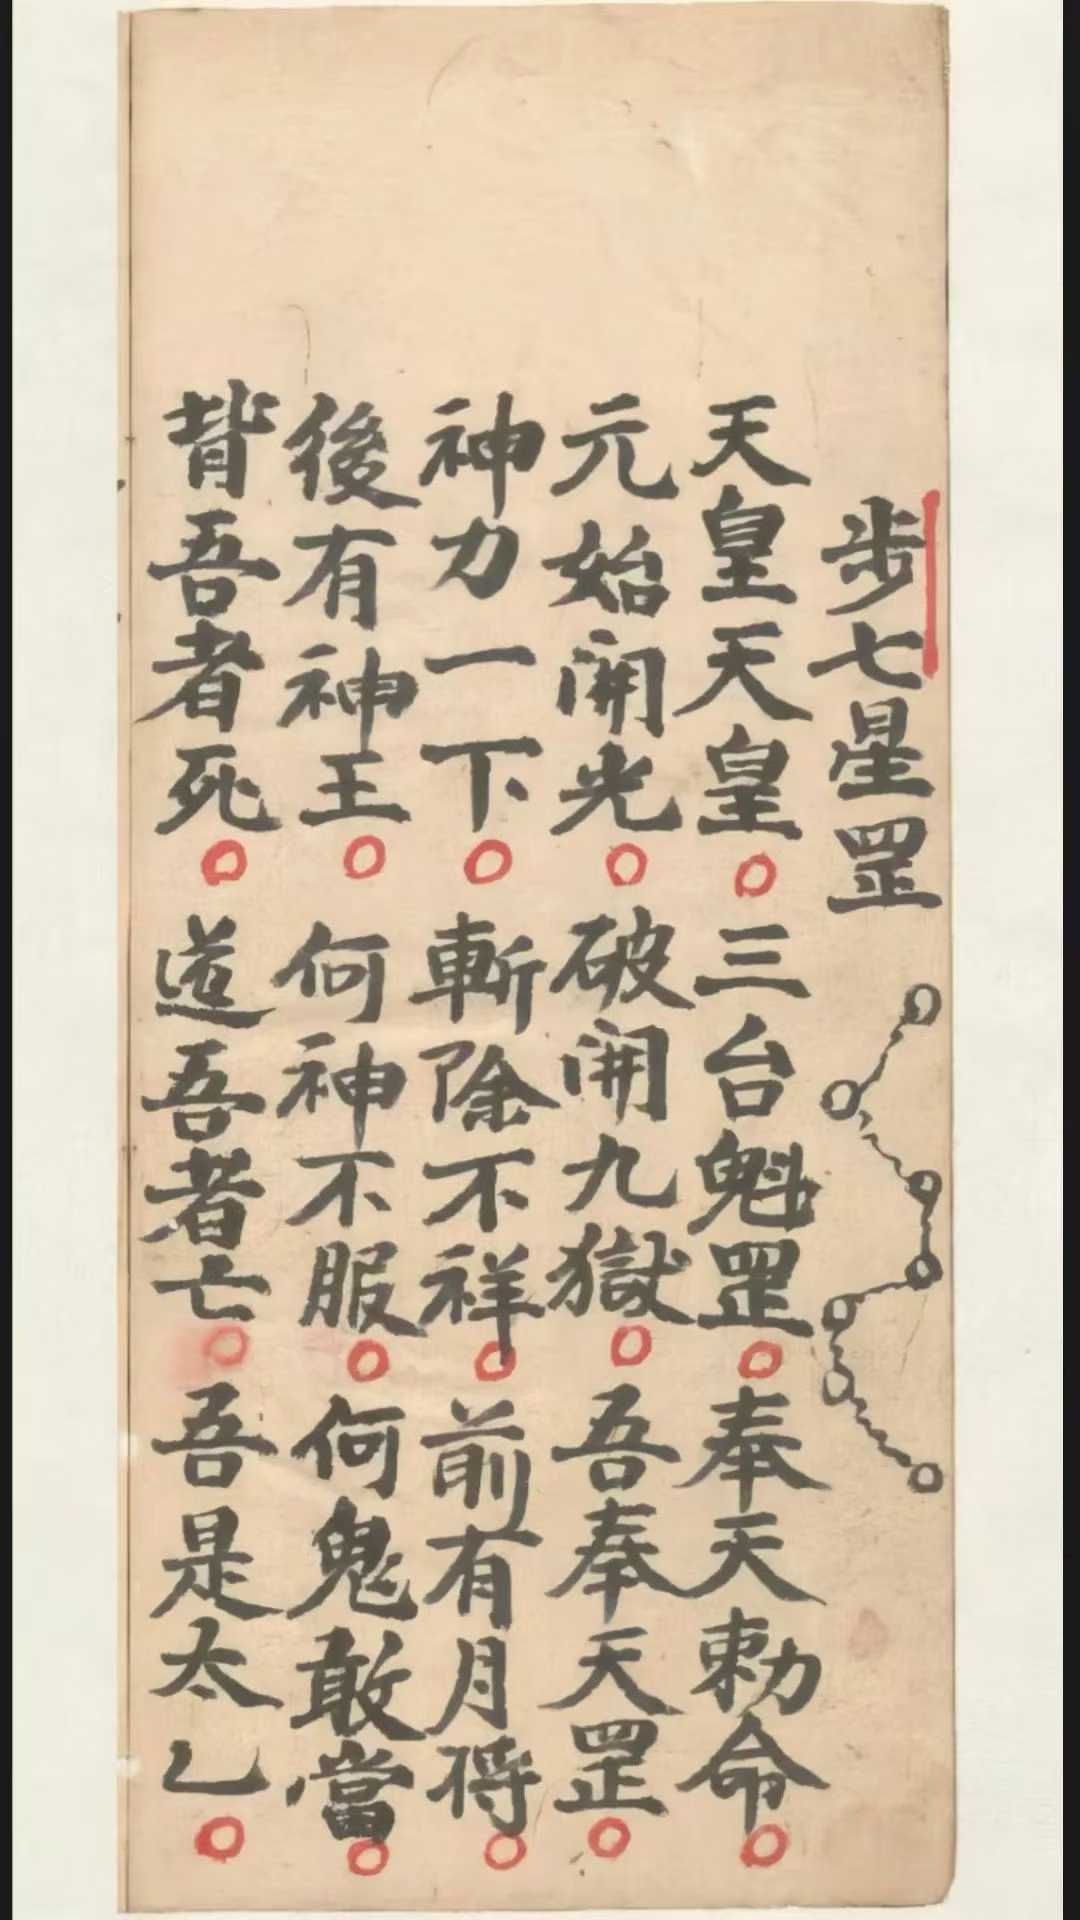 步七星罡
天皇天皇○三台魁罡○奉天勅命○
元始開光○破開九獄○吾奉天罡○
神力一下○斬除不祥○前有月將○
後有神王○何神不服○何鬼敢當○
背吾者死○道吾者亡○吾是太乙○